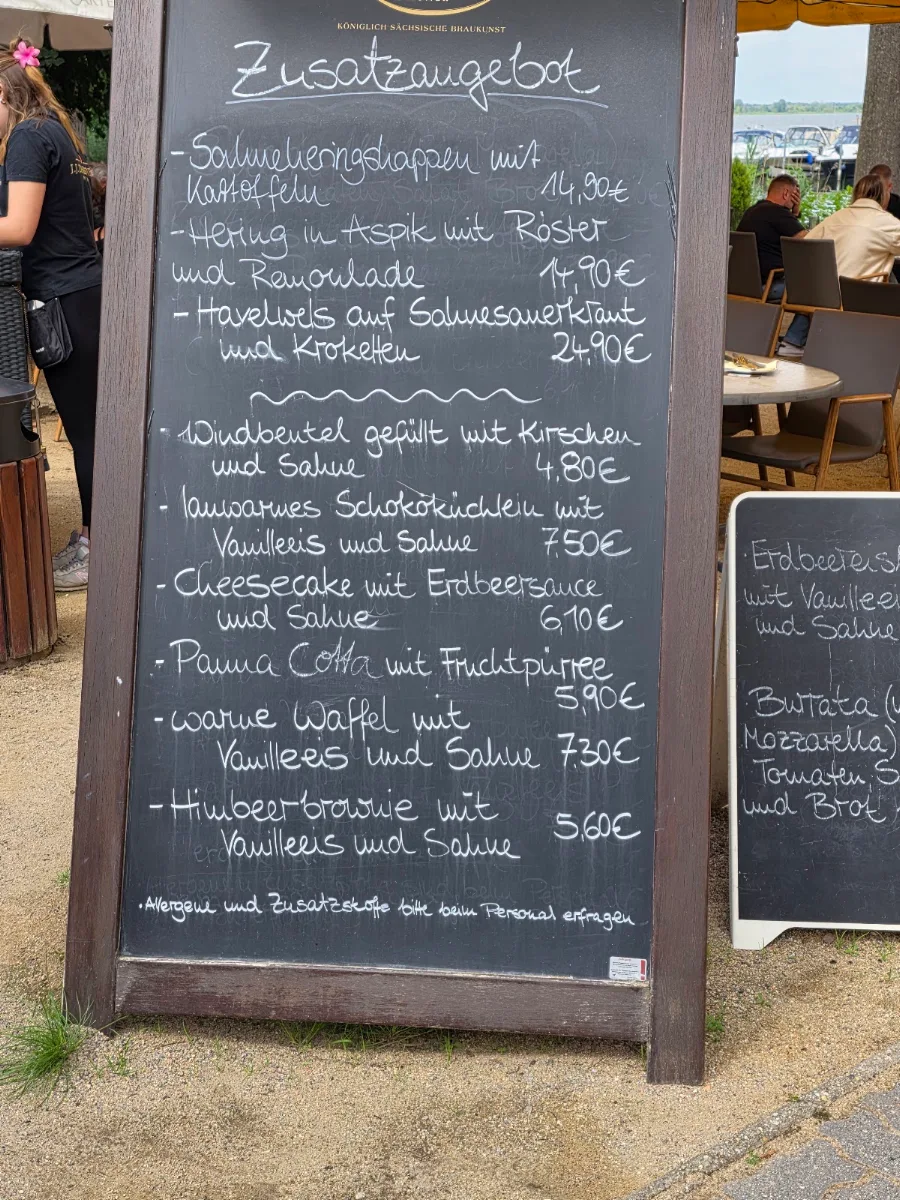 KÖNIGLICH SÄCHSISCHE BRAUKUNST
Zusatzangebot
- Sahneheringshappen mit
Kartoffeln 14,90€
- Hering in Aspik mit Röster
und Remoulade 14,90€
- Havelwels auf Sahnesauerkraut
und Kroketten 24,90€
- Windbeutel gefüllt mit Kirschen
und Sahne 4,80€
- lauwarmes Schokoküchlein mit
Vanilleeis und Sahne 7,50€
- Cheesecake mit Erdbeersauce
und Sahne 6,10€
- Panna Cotta mit Fruchtpürree
5,90€
- warme Waffel mit
Vanilleeis und Sahne 7,30€
- Himbeerbrownie mit
Vanilleeis und Sahne 5,60€
• Allergene und Zusatzstoffe bitte beim Personal erfragen
mit
und Sahne
Burrata
Mozzarella)
Tomaten
und Brot